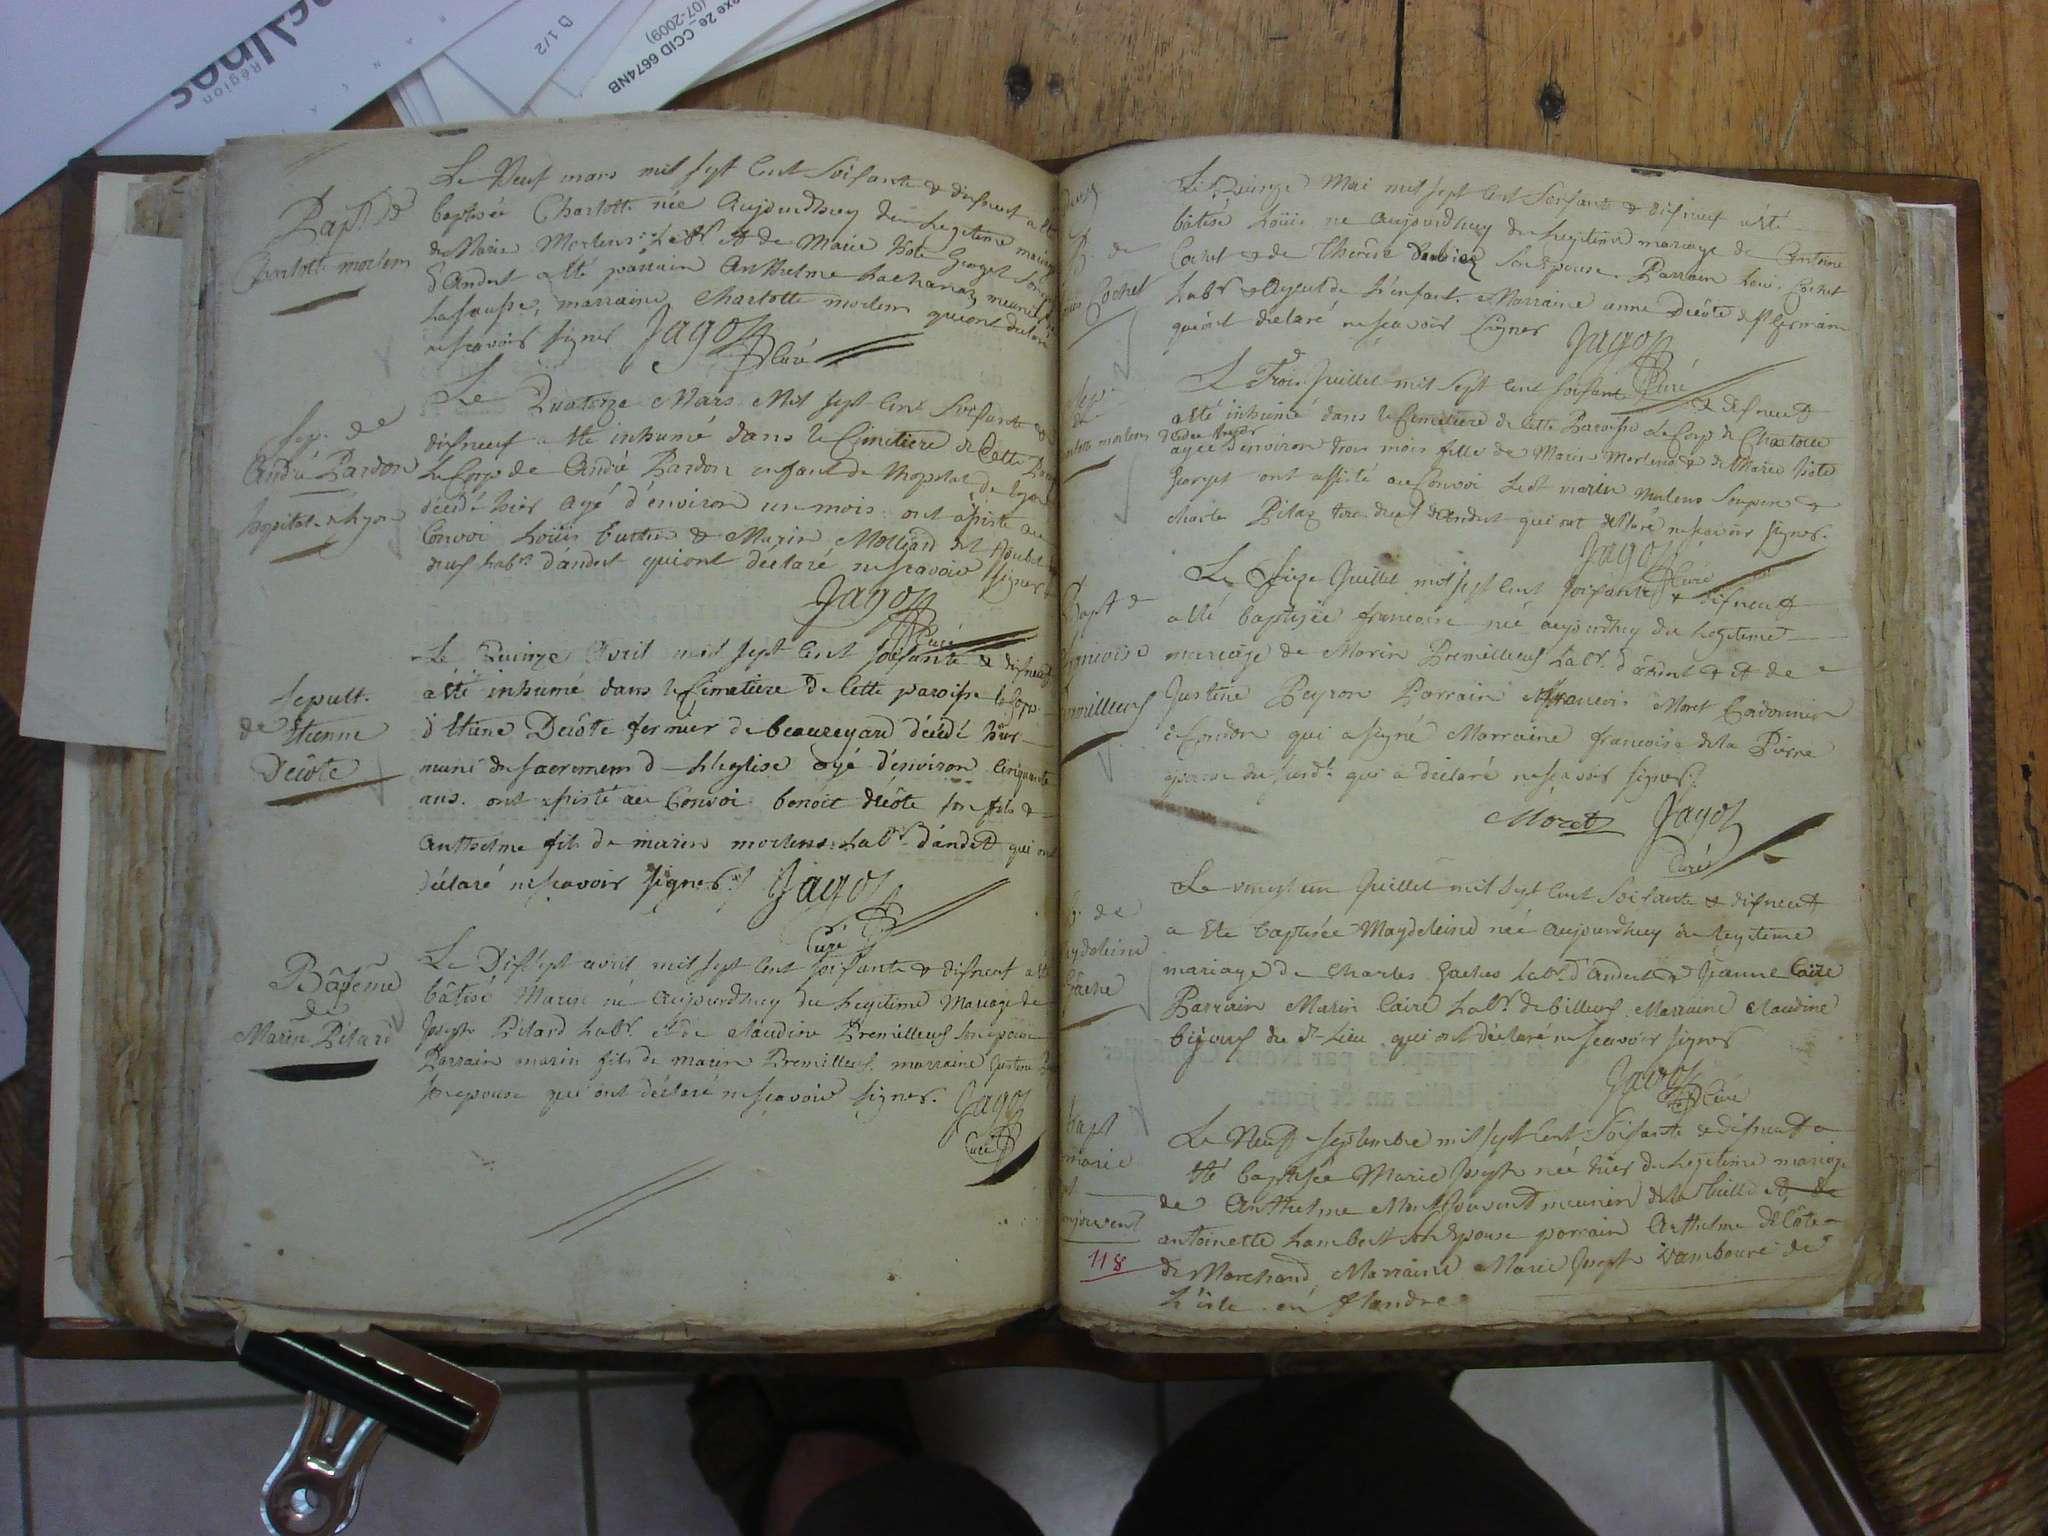 Bapt. de
Charlotte morlens
Le Neuf mars mil sept Cent Soisante & disneuf a Eté
baptisée Charlotte née Aujourdhuy du Legitime mariage
de Marin Morlens Labr. et de Marie Joste Georget Son
d'Andert a été parrain Anthelme Lachanaz meunier
Lasausse, marraine Charlotte morlens qui ont declaré
ne scavoir signer Jagoz
Curé
Sep. de
André Pardon
hopital de Lyon
Le Quatorze Mars Mil sept Cent Soisante &
disneuf a ete inhumé dans le Cimetiere de Cette
Le Corps de André Pardon enfant de l'hopital de Lyon
décédé hier agé d'environ un mois ont assisté au
Convoi Loüis & Marin Mollard
deus habts d'andert qui ont déclaré ne scavoir signer
Jagoz
Curé
Sepult.
de Etienne
Decôte
Le Quinze Avril mil sept Cent soisante & disneuf
a Eté inhumé dans le Cimetiere de Cette paroisse le Corps
d'Etiene Decôte fermier de beauregard décédé hier
muni des sacremens de L'Eglise agé d'environ Cinquante
ans. ont assisté au Convoi benoit decôte son fils &
Anthelme fils de marin morlens Labr. d'andert qui ont
déclaré ne scavoir signer Jagoz
Curé
Bâpteme
de
Marin Pitard
Le Dissept avril mil sept Cent soisante & disneuf a Eté
bâtisé Marin né Aujourdhuy du Legitime Mariage de
Joseph Pitard Labr. et de Claudine Premilleus son epouse
Parrain marin fils de marin Premilleus marraine Justine
son epouse qui ont déclaré ne scavoir signer. Jagoz
Curé
de
Cochet
Le Quinze Mai mil sept Cent Soisante & disneuf a été
bâtisé Loüis né Aujourdhuy du Legitime mariage de Antoine
Cochet & de Therese son Epouse. Parrain Louis Cochet
Labr. & Ayeul de L'enfant. Marraine anne Decôte de St germain
qui ont declaré ne scavoir Signer Jagoz
Curé
Sep.
de
morlens
Le Trois Juillet mil Sept Cent soisante & disneuf
a été inhumé dans le Cimetiere de Cette Paroisse Le Corps de Charlotte
agée d'environ trois mois fille de Marin Morlens & de Marie Joste
Georget ont assisté au Convoi Ledt marin Morlens Son pere &
Charle Pitaz tous deus d'Andert qui ont declaré ne scavoir signer.
Jagoz
Curé
Bapt. de
françoise
Premilleus
Le Seize Juillet mil sept Cent soisante & disneuf
a été baptisée francoise née aujourdhuy du Legitime
mariage de Marin Premilleus Labr. d'andert & de
Justine Peyson Parrain francois Moret Cordonnier
à Condon qui a signé Marraine francoise de la Pierre
epouse du susdt. qui a déclaré ne scavoir signer.
Moret Jagoz
Curé
de
Magdeleine
Le vingt un Juillet mil sept Cent Soisante & disneuf
a Ete baptisée Magdeleine née Aujourdhuy du legitime
mariage de Charles Labr. d'Andert & Jeanne Caire
Parrain Marin Caire Labr. de billeus Marraine Claudine
du dt Lieu qui ont déclaré ne scavoir signer
Jagoz
Curé
bapt
marie
118
Le Neuf Septembre mil sept Cent Soisante & disneuf a
été baptisée Marie Joseph née hier du legitime mariage
de Anthelme Montjouvent meunier
antoinette Lambert son Epouse parrain Anthelme de Côte
de Marchand Marraine Marie Joseph Vambouré de
L'isle en flandre
Région
D 1/2
CCID 6674NB
07-2009)